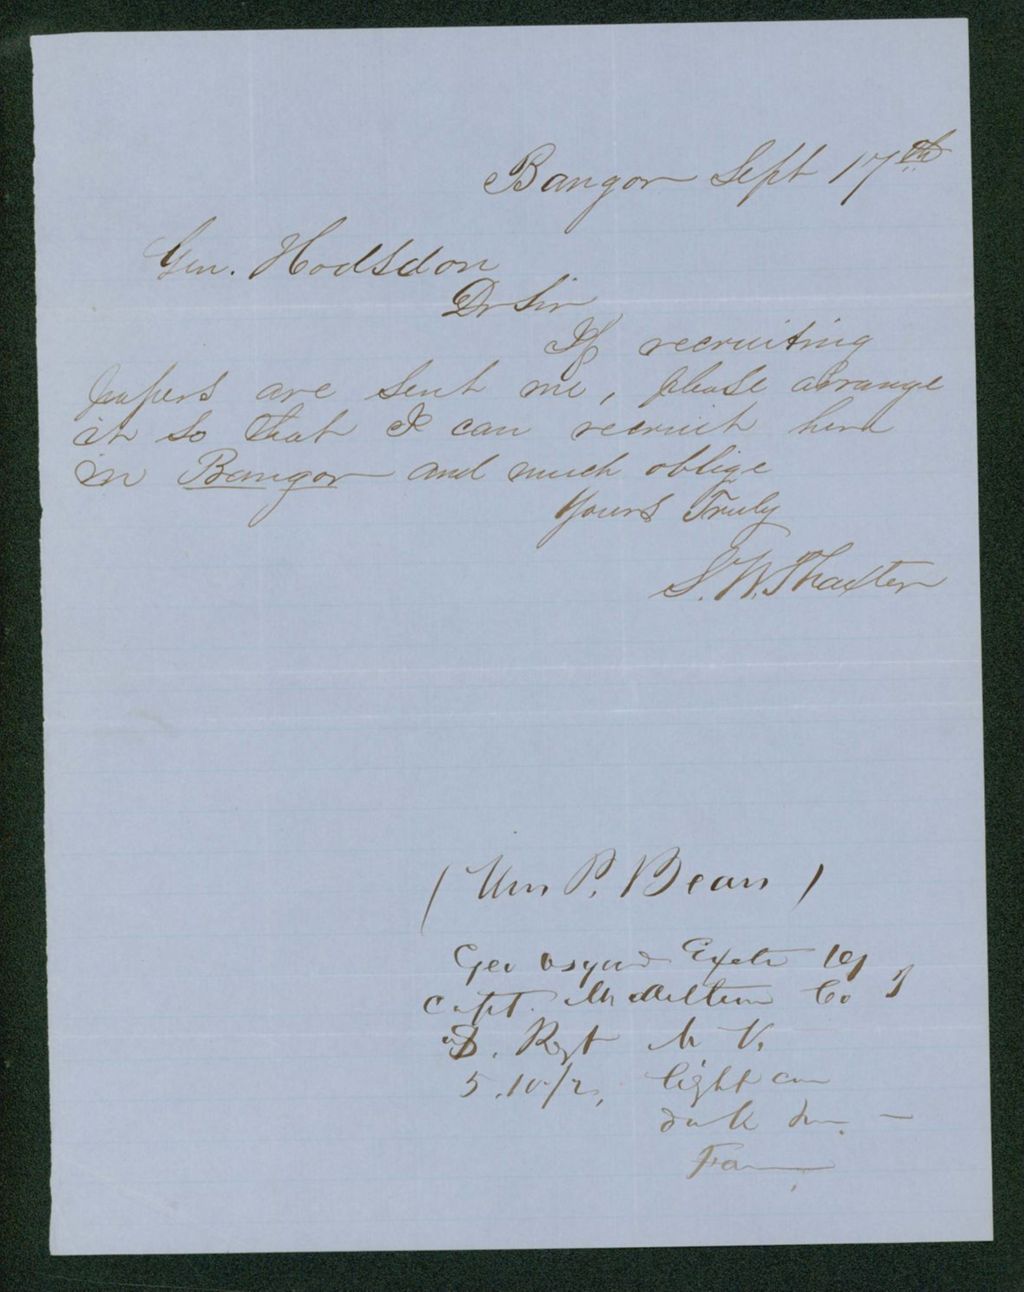 Bangor Sept 17th
Gen. Hodsdon
Dr Sir
If recruiting
papers are sent me, please arrange
it so that I can recruit here
in Bangor and much oblige
Yours Truly
S. W. Thaxter
(Wm P. Bean)
Geo Exeter 19
Capt. Co
Regt M V.
5.10/2, light
dark